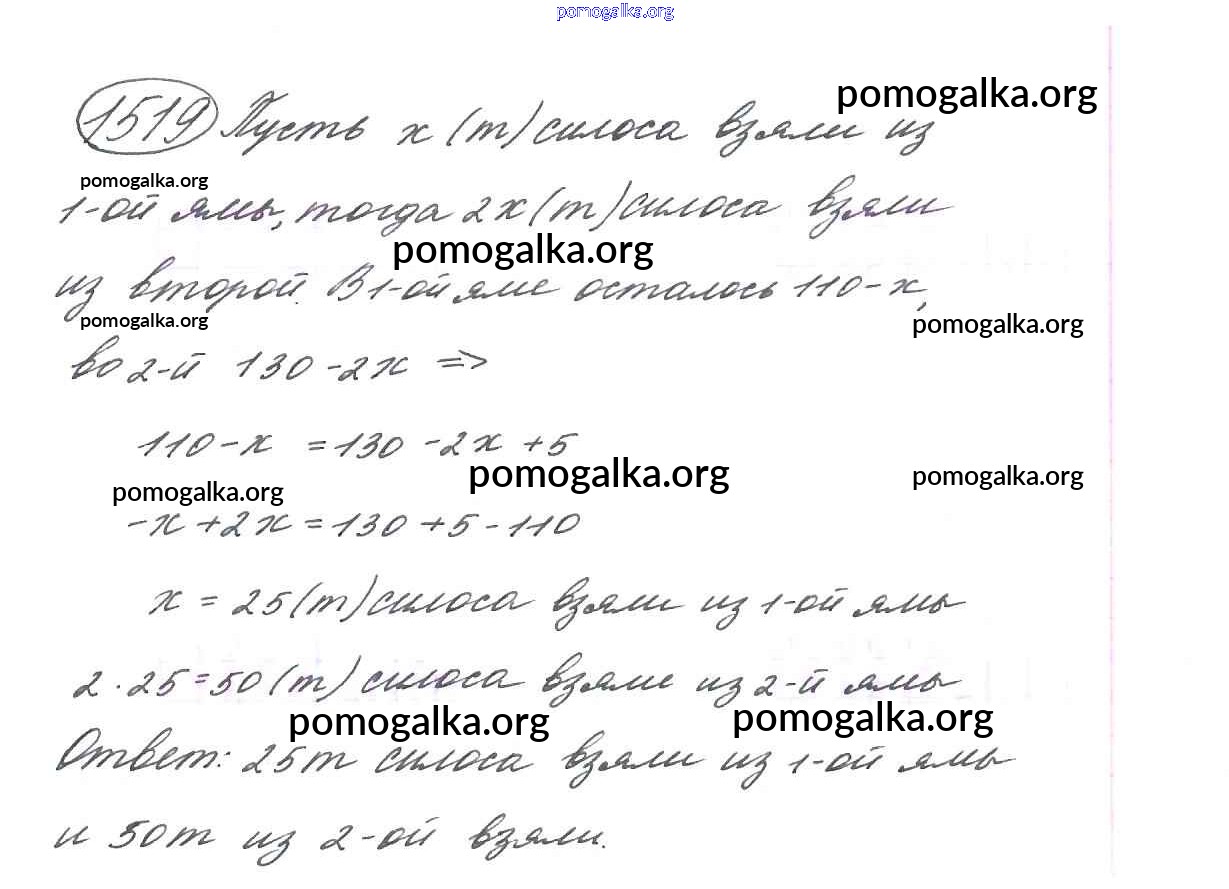 pomogalka.org
pomogalka.org
1519 Пусть x (т) силоса взяли из
pomogalka.org
1-ой ямы, тогда 2x (т) силоса взяли
pomogalka.org
из второй. В 1-ой яме осталось 110-x,
pomogalka.org
pomogalka.org
во 2-й 130-2x =>
110-x = 130-2x+5
pomogalka.org
pomogalka.org
pomogalka.org
-x+2x=130+5-110
x = 25 (т) силоса взяли из 1-ой ямы
2·25=50 (т) силоса взяли из 2-й ямы
pomogalka.org
pomogalka.org
Ответ: 25т силоса взяли из 1-ой ямы
и 50т из 2-ой взяли.